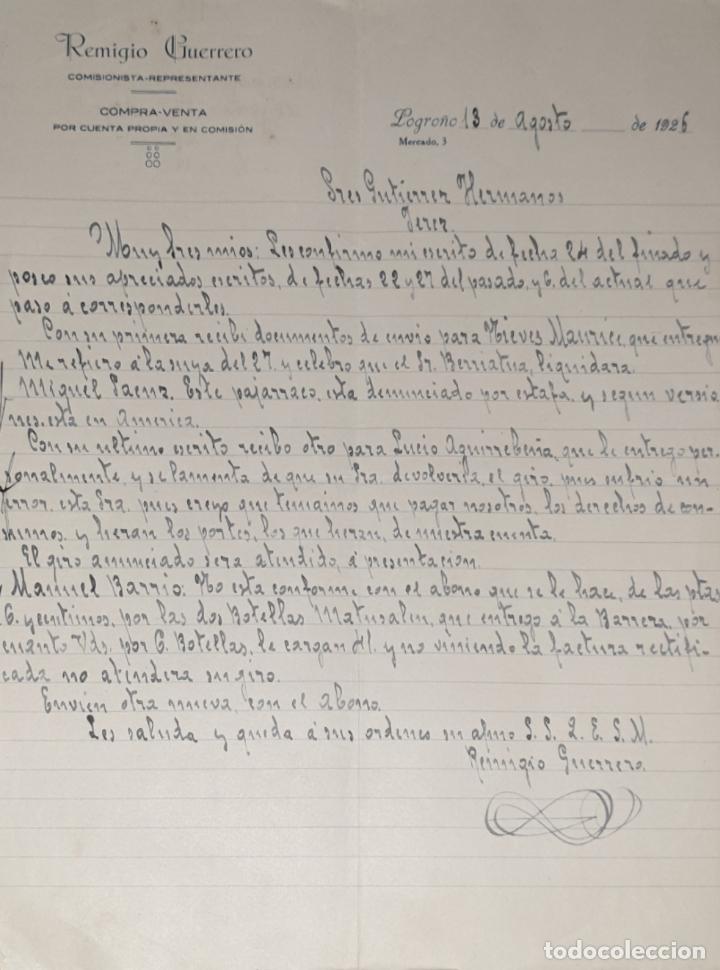 Remigio Guerrero
COMISIONISTA-REPRESENTANTE
COMPRA-VENTA
POR CUENTA PROPIA Y EN COMISIÓN
Logroño 13 de agosto de 1926
Mercado, 3
Sres Gutiérrez Hermanos
Jerez
Muy Sres mios: Les confirmo mi escrito de fecha 24 del finado y
poseo sus apreciados escritos, de fechas 22 y 27 del pasado, y 6. del actual que
paso á corresponderles.
Con su primera recibi documentos de envio para Nieves Maurice, que entregué
Me refiero á la suya del 27. y celebro que el Sr. Berriatua, liquidara.
Miguel Saenz. Este pajarraco, esta denunciado por estafa, y segun versio
nes, está en America.
Con su ultimo escrito recibo otro para Lucio Aguirrebeña, que le entrego per-
sonalmente, y se lamenta de que su Sra. devolverla, el giro, pues sufrio un
error, esta Sra, pues creyo que teniamos que pagar nosotros, los derechos de con-
sumos, y heran los portes, los que heran, de nuestra cuenta.
El giro anunciado sera atendido, á presentacion.
Manuel Barrio: No esta conforme con el abono que se le hace, de las ptas
6. y centimos, por las dos Botellas Matusalen, que entrego á la Barrera, por
cuanto Vds, por 6. Botellas, le cargan 41. y no viniendo la factura rectifi-
cada no atendera su giro.
Envien otra nueva, con el abono.
Les saluda y queda á sus ordenes su afmo S. S. Q. E. S. M.
Remigio Guerrero.
todocoleccion